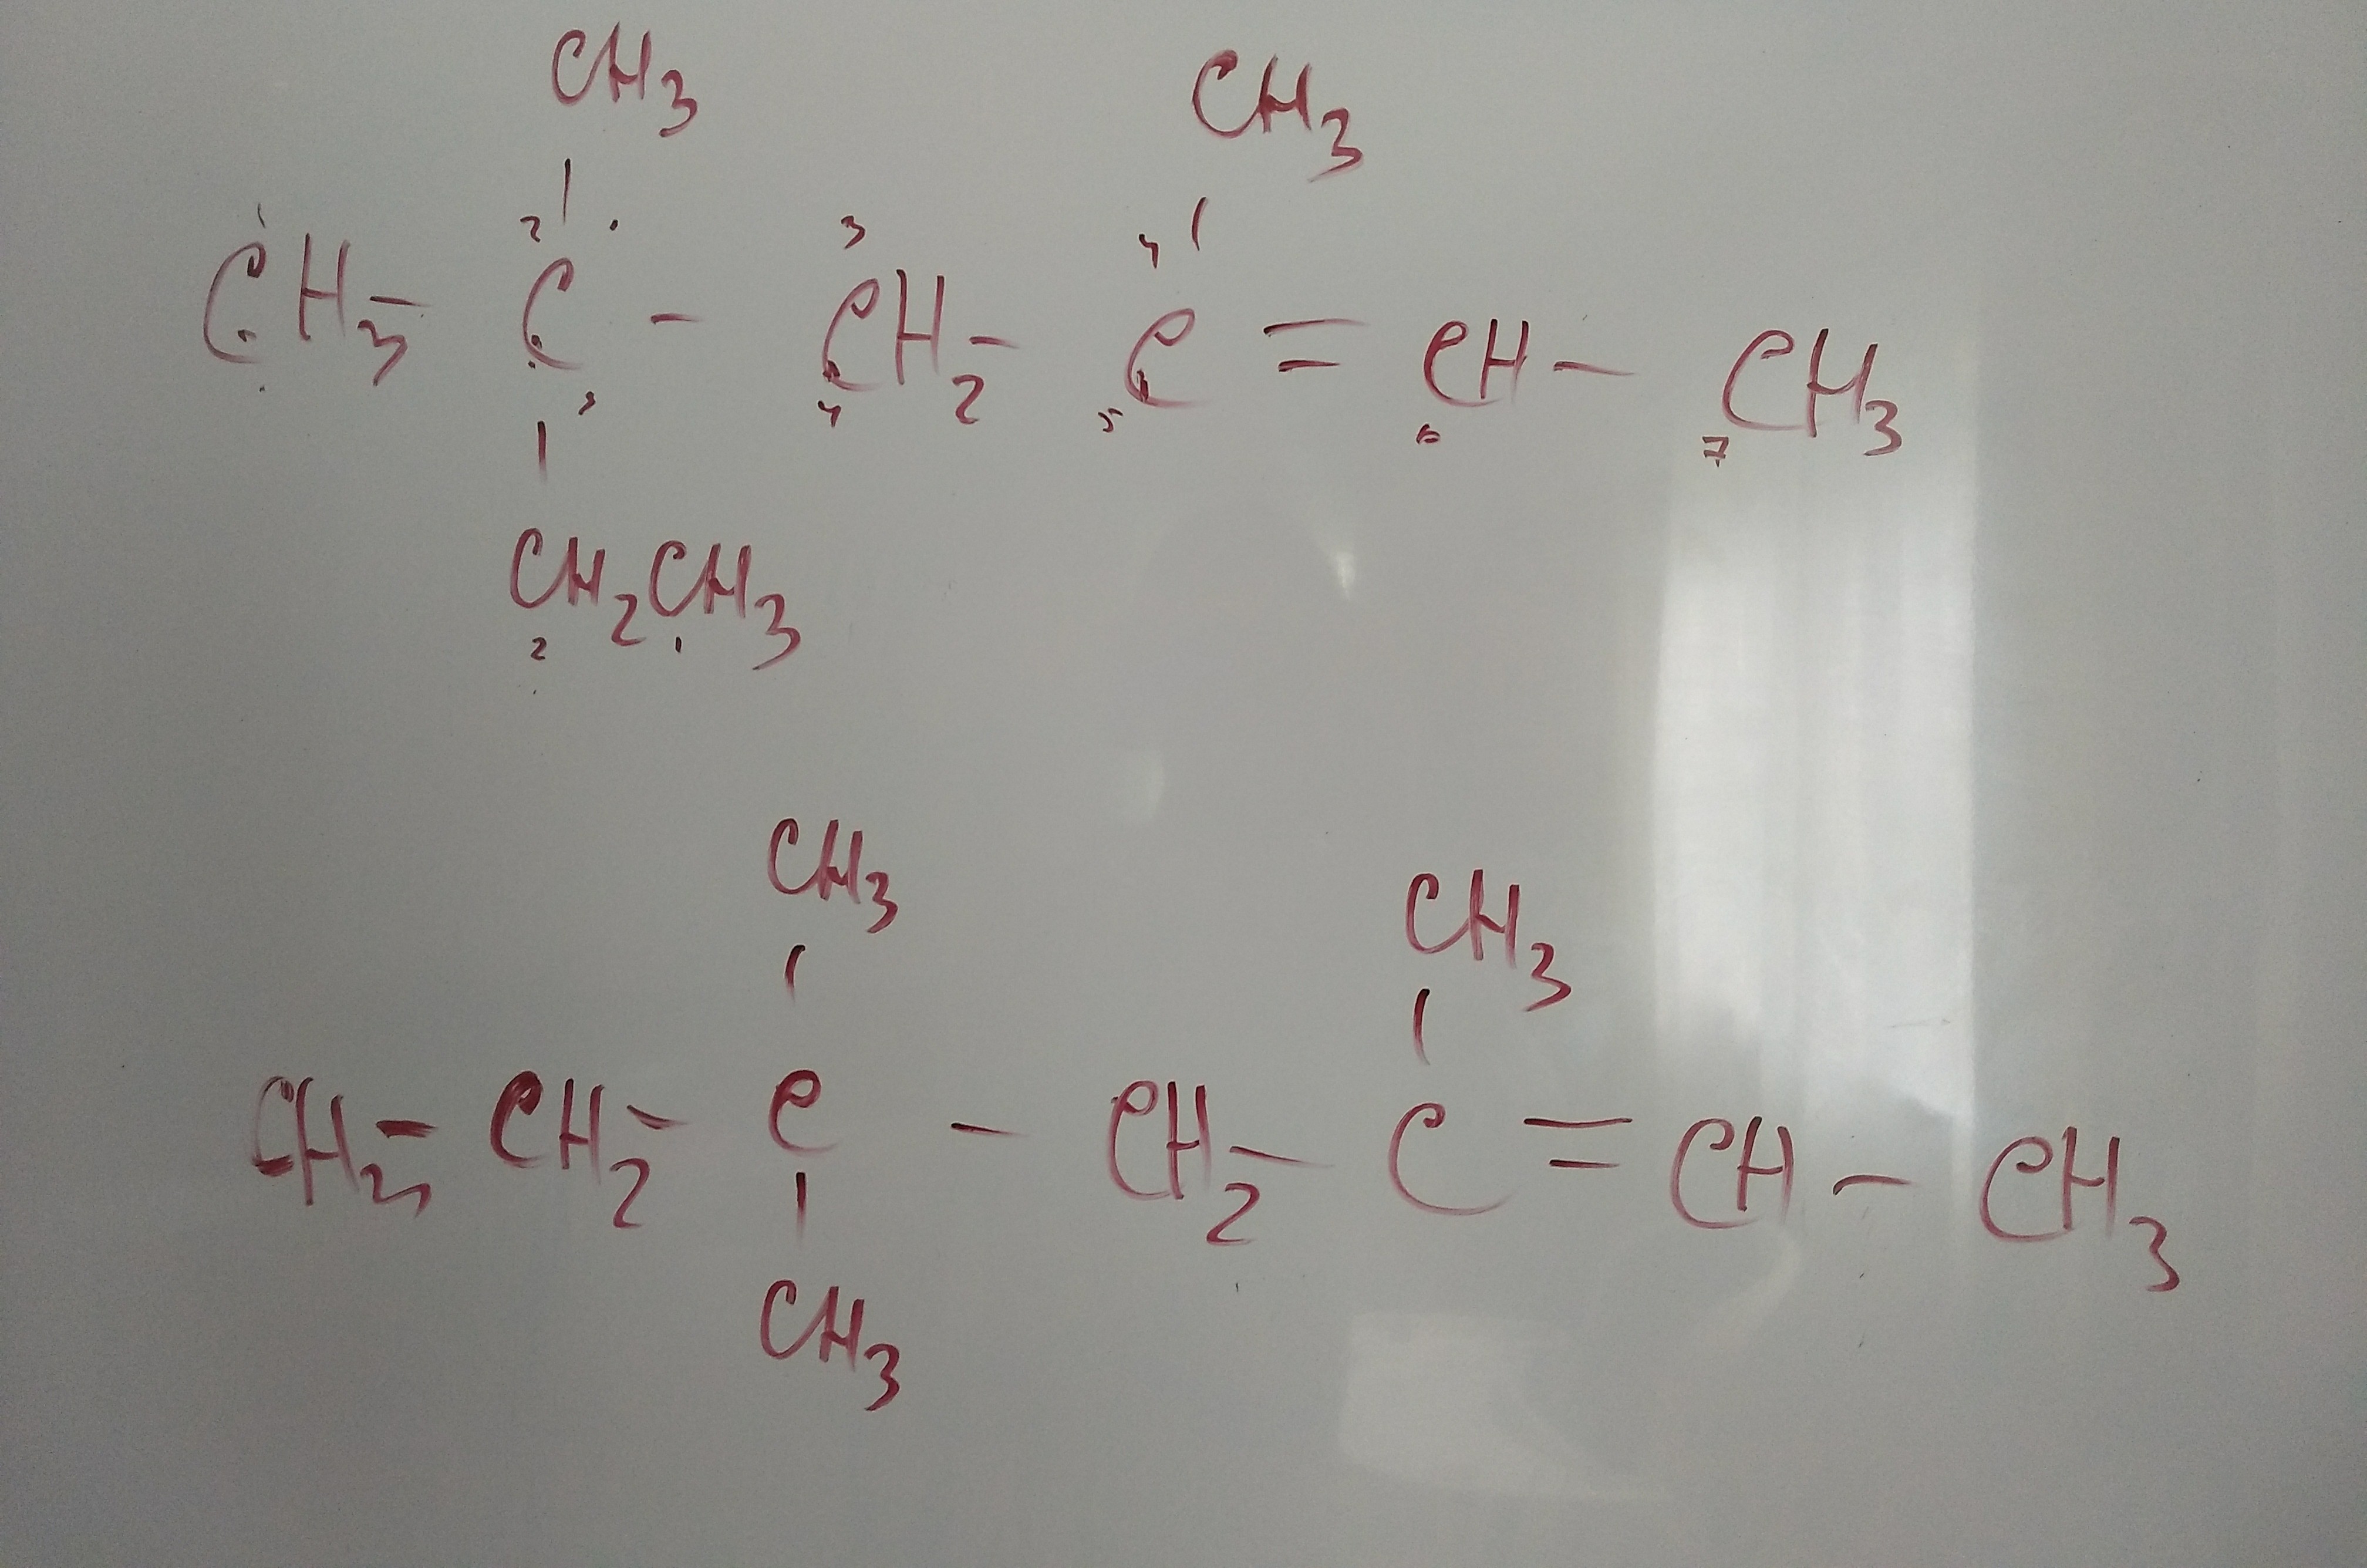 CH3 CH3
1 2 3 4
CH3 - C - CH2 - C = CH - CH3
3 4 5 6 7
CH2CH3
2 1
CH3 CH3
CH3 - CH2 - C - CH2 - C = CH - CH3
CH3